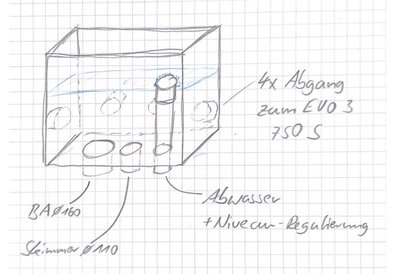 4x Abgang
zum EVO 3
750 S
Abwasser
+ Niveau-Regulierung
BA Ø160
Skimmer Ø110